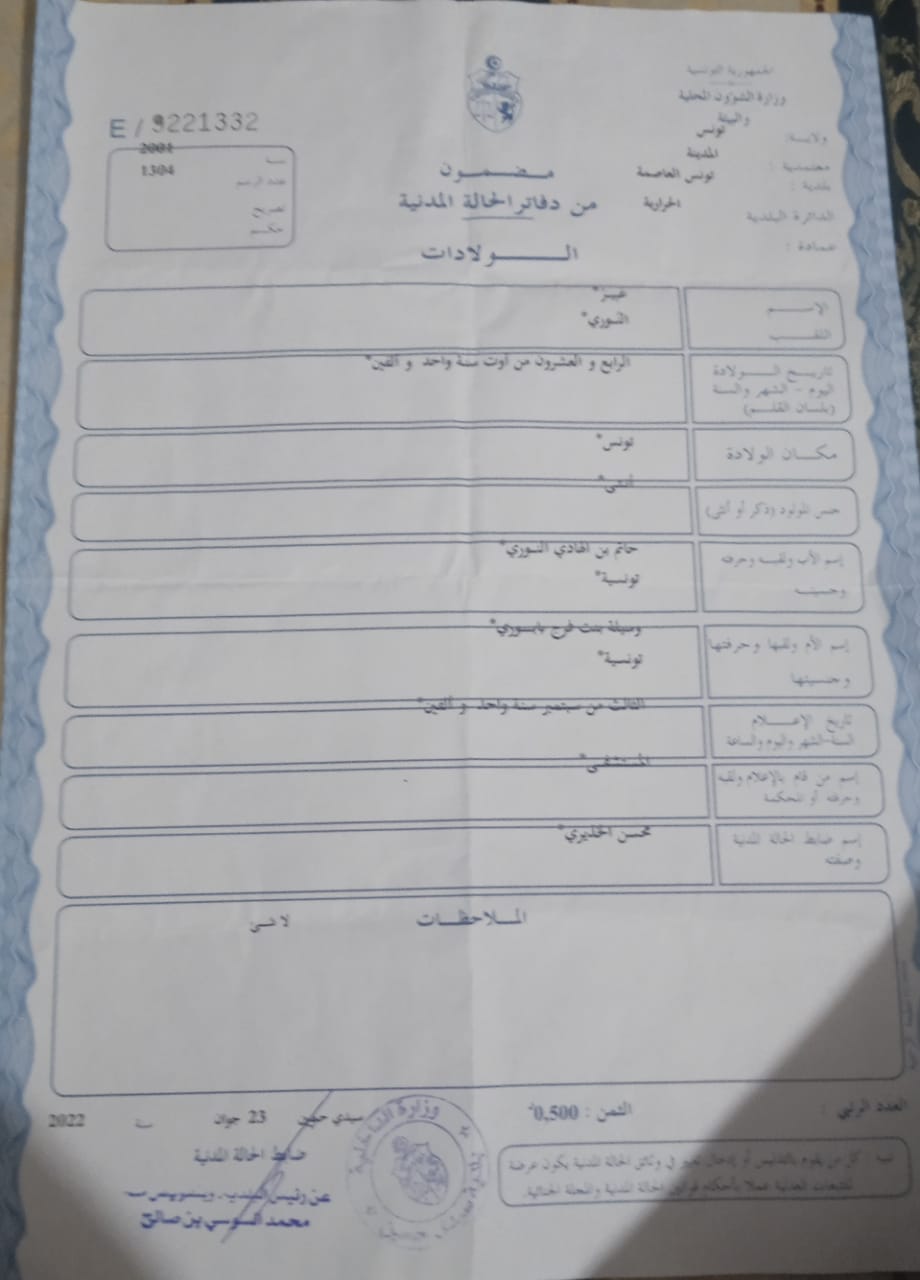 الجمهورية التونسية
وزارة الشؤون المحلية
والبيئة
ولاية: تونس
معتمدية : المدينة
بلدية : تونس العاصمة
الدائرة البلدية الحرارية
عمادة :
E / 9221332
سنة 2001
عدد الرسم 1304
تصريح
حكم
مضمون
من دفاتر الحالة المدنية
الولادات
الإسم
اللقب النوري*
تاريخ الولادة الرابع و العشرون من أوت سنة واحد و ألفين*
اليوم - الشهر والسنة
(بلسان القلم)
مكان الولادة تونس*
جنس المولود (ذكر أو أنثى) أنثى*
إسم الأب ولقبه وحرفته حاتم بن الهادي النوري*
وجنسيته تونسية*
إسم الأم ولقبها وحرفتها وسيلة بنت فرج
وجنسيتها تونسية*
تاريخ الإعلام الثالث من سبتمبر سنة واحد و ألفين*
السنة-الشهر واليوم والساعة
إسم من قام بالإعلام ولقبه المستشفى*
وحرفته أو المحكمة
إسم ضابط الحالة المدنية محسن الخذيري*
وصفته
الملاحظات لا شئ
العدد الرتبي : الثمن : 0,500
سيدي حسين 23 جوان سنة 2022
ضابط الحالة المدنية
محمد السوسي بن صالح
وزارة الداخلية
تنبيه : كل من يقوم بالتدليس أو إدخال تغيير في وثائق الحالة المدنية يكون عرضة
للتتبعات العدلية عملا بأحكام قوانين الحالة المدنية والمجلة الجنائية.